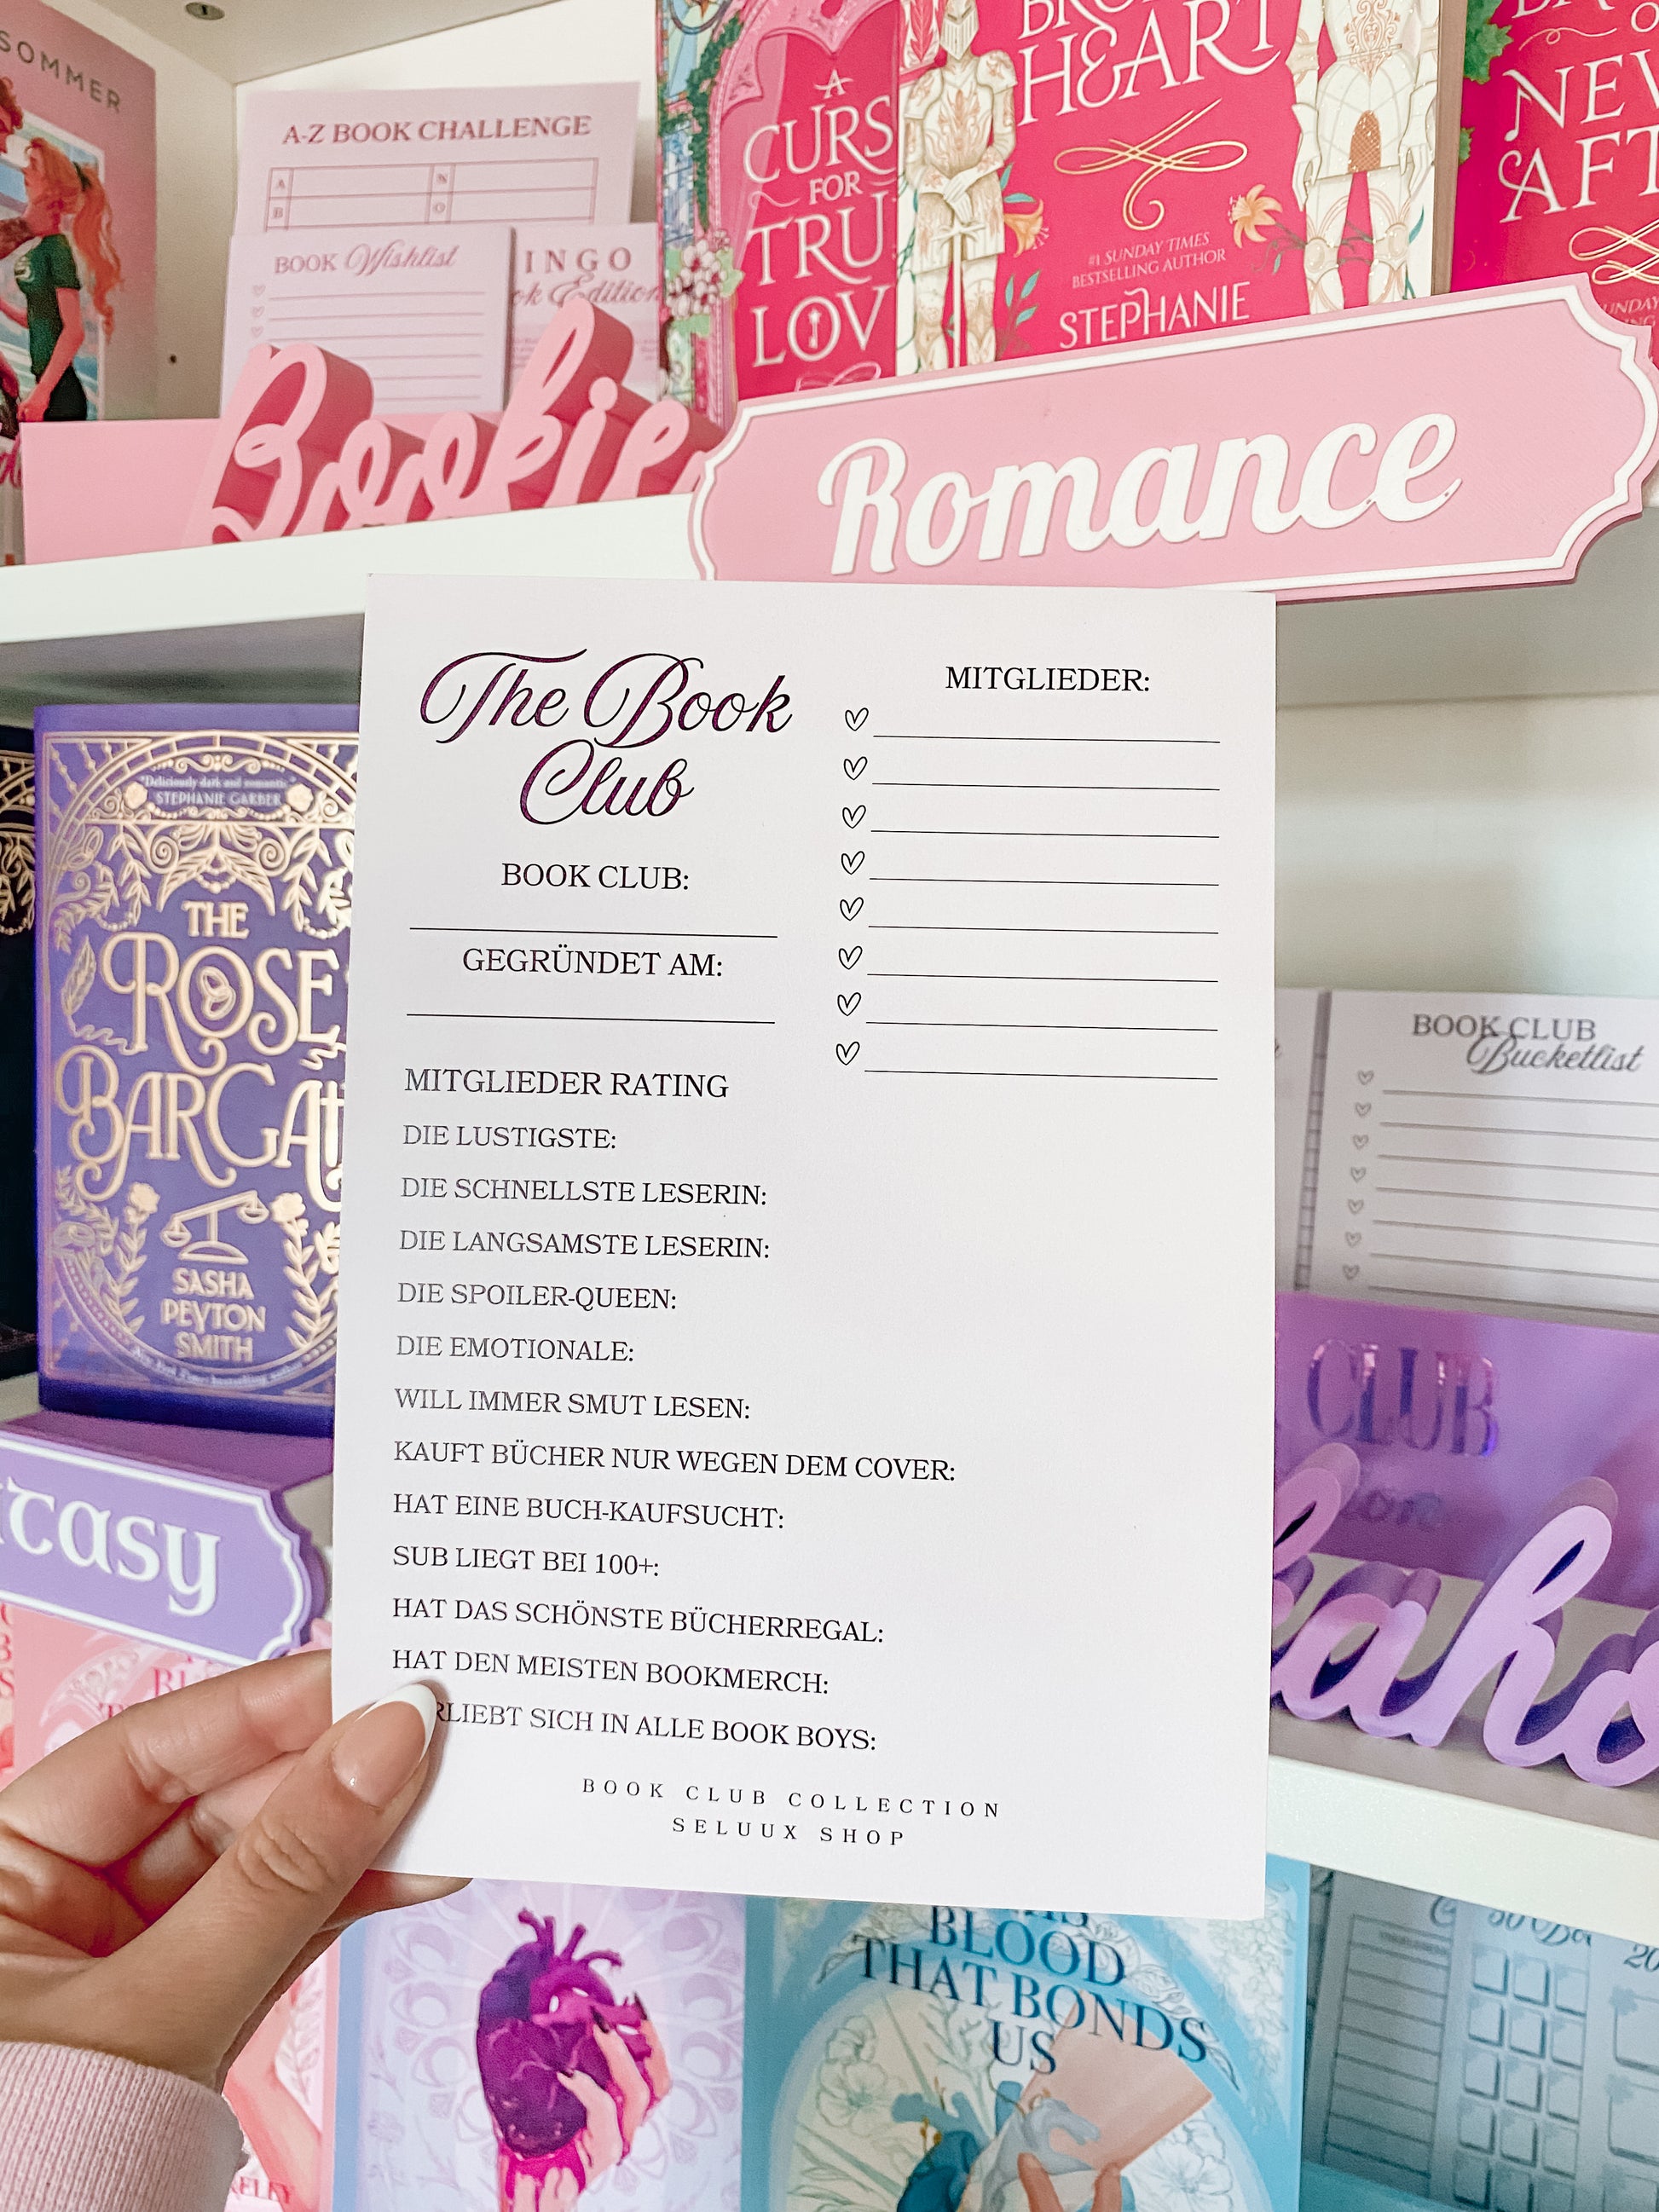 SOMMER
A-Z BOOK CHALLENGE
A N
B O
BOOK Wishlist
INGO
Edition
Bookie
A
CURS
FOR
TRU
LOV
HEART
#1 SUNDAY TIMES
BESTSELLING AUTHOR
STEPHANIE
NEV
AFT
Romance
The Book
Club
BOOK CLUB:
GEGRÜNDET AM:
MITGLIEDER:
MITGLIEDER RATING
DIE LUSTIGSTE:
DIE SCHNELLSTE LESERIN:
DIE LANGSAMSTE LESERIN:
DIE SPOILER-QUEEN:
DIE EMOTIONALE:
WILL IMMER SMUT LESEN:
KAUFT BÜCHER NUR WEGEN DEM COVER:
HAT EINE BUCH-KAUFSUCHT:
SUB LIEGT BEI 100+:
HAT DAS SCHÖNSTE BÜCHERREGAL:
HAT DEN MEISTEN BOOKMERCH:
RLIEBT SICH IN ALLE BOOK BOYS:
BOOK CLUB COLLECTION
SELUUX SHOP
"Deliciously dark and romantic."
STEPHANIE GARBER
THE
ROSE
BARGAI
SASHA
PEYTON
SMITH
tasy
BOOK CLUB
Bucketlist
CLUB
aho
BLOOD
THAT BONDS
US